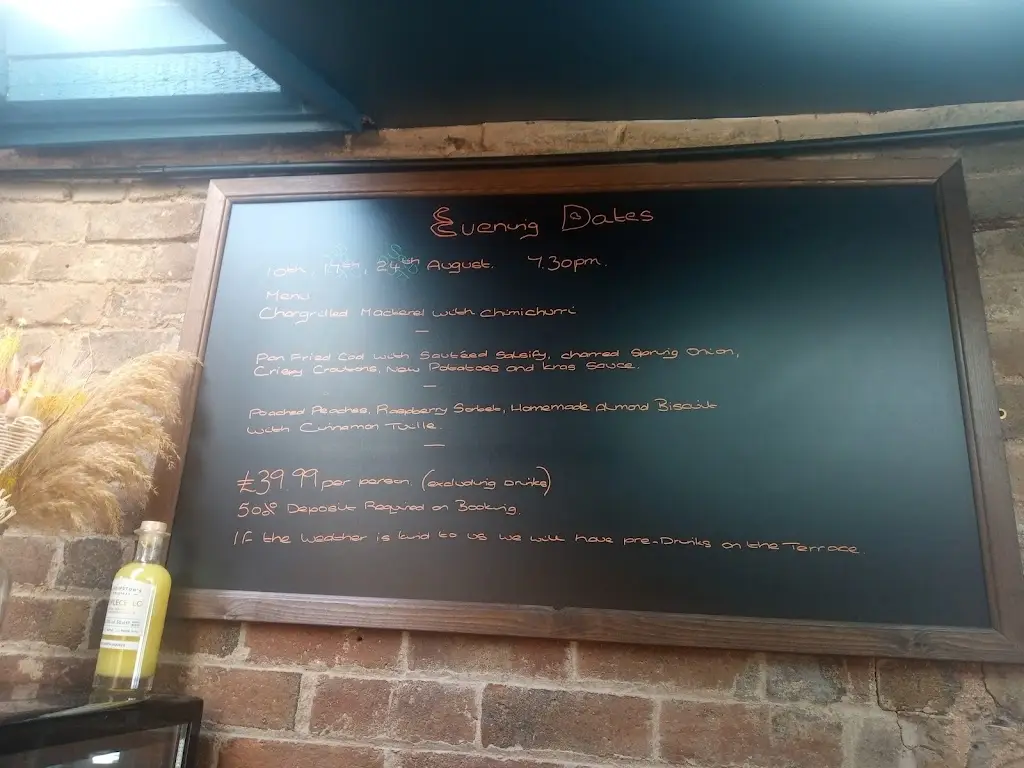 Evening Dates
10th, 17th, 24th August. 7.30pm.
Menu
Chargrilled Mackerel with Chimichurri
–
Pan Fried Cod with Sautéed Salsify, charred Spring Onion,
Crispy Croutons, New Potatoes and Kras Sauce.
–
Poached Peaches, Raspberry Sorbet, Homemade Almond Biscuit
with Cinnamon Tuille.
–
£39.99 per person (excluding Drinks)
50% Deposit Required on Booking.
If the Weather is kind to us we will have pre-Drinks on the Terrace.